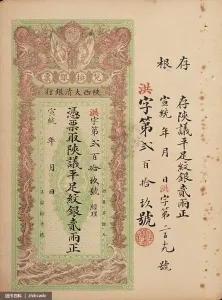 存根
存陝議平足紋銀貳兩正
宣統 年 月 日 洪字第 號
洪字第貳百拾玖號
陝西大清銀行
洪字第貳百拾玖號 經理
憑票取陝議平足紋銀貳兩正
宣統 年 月 日